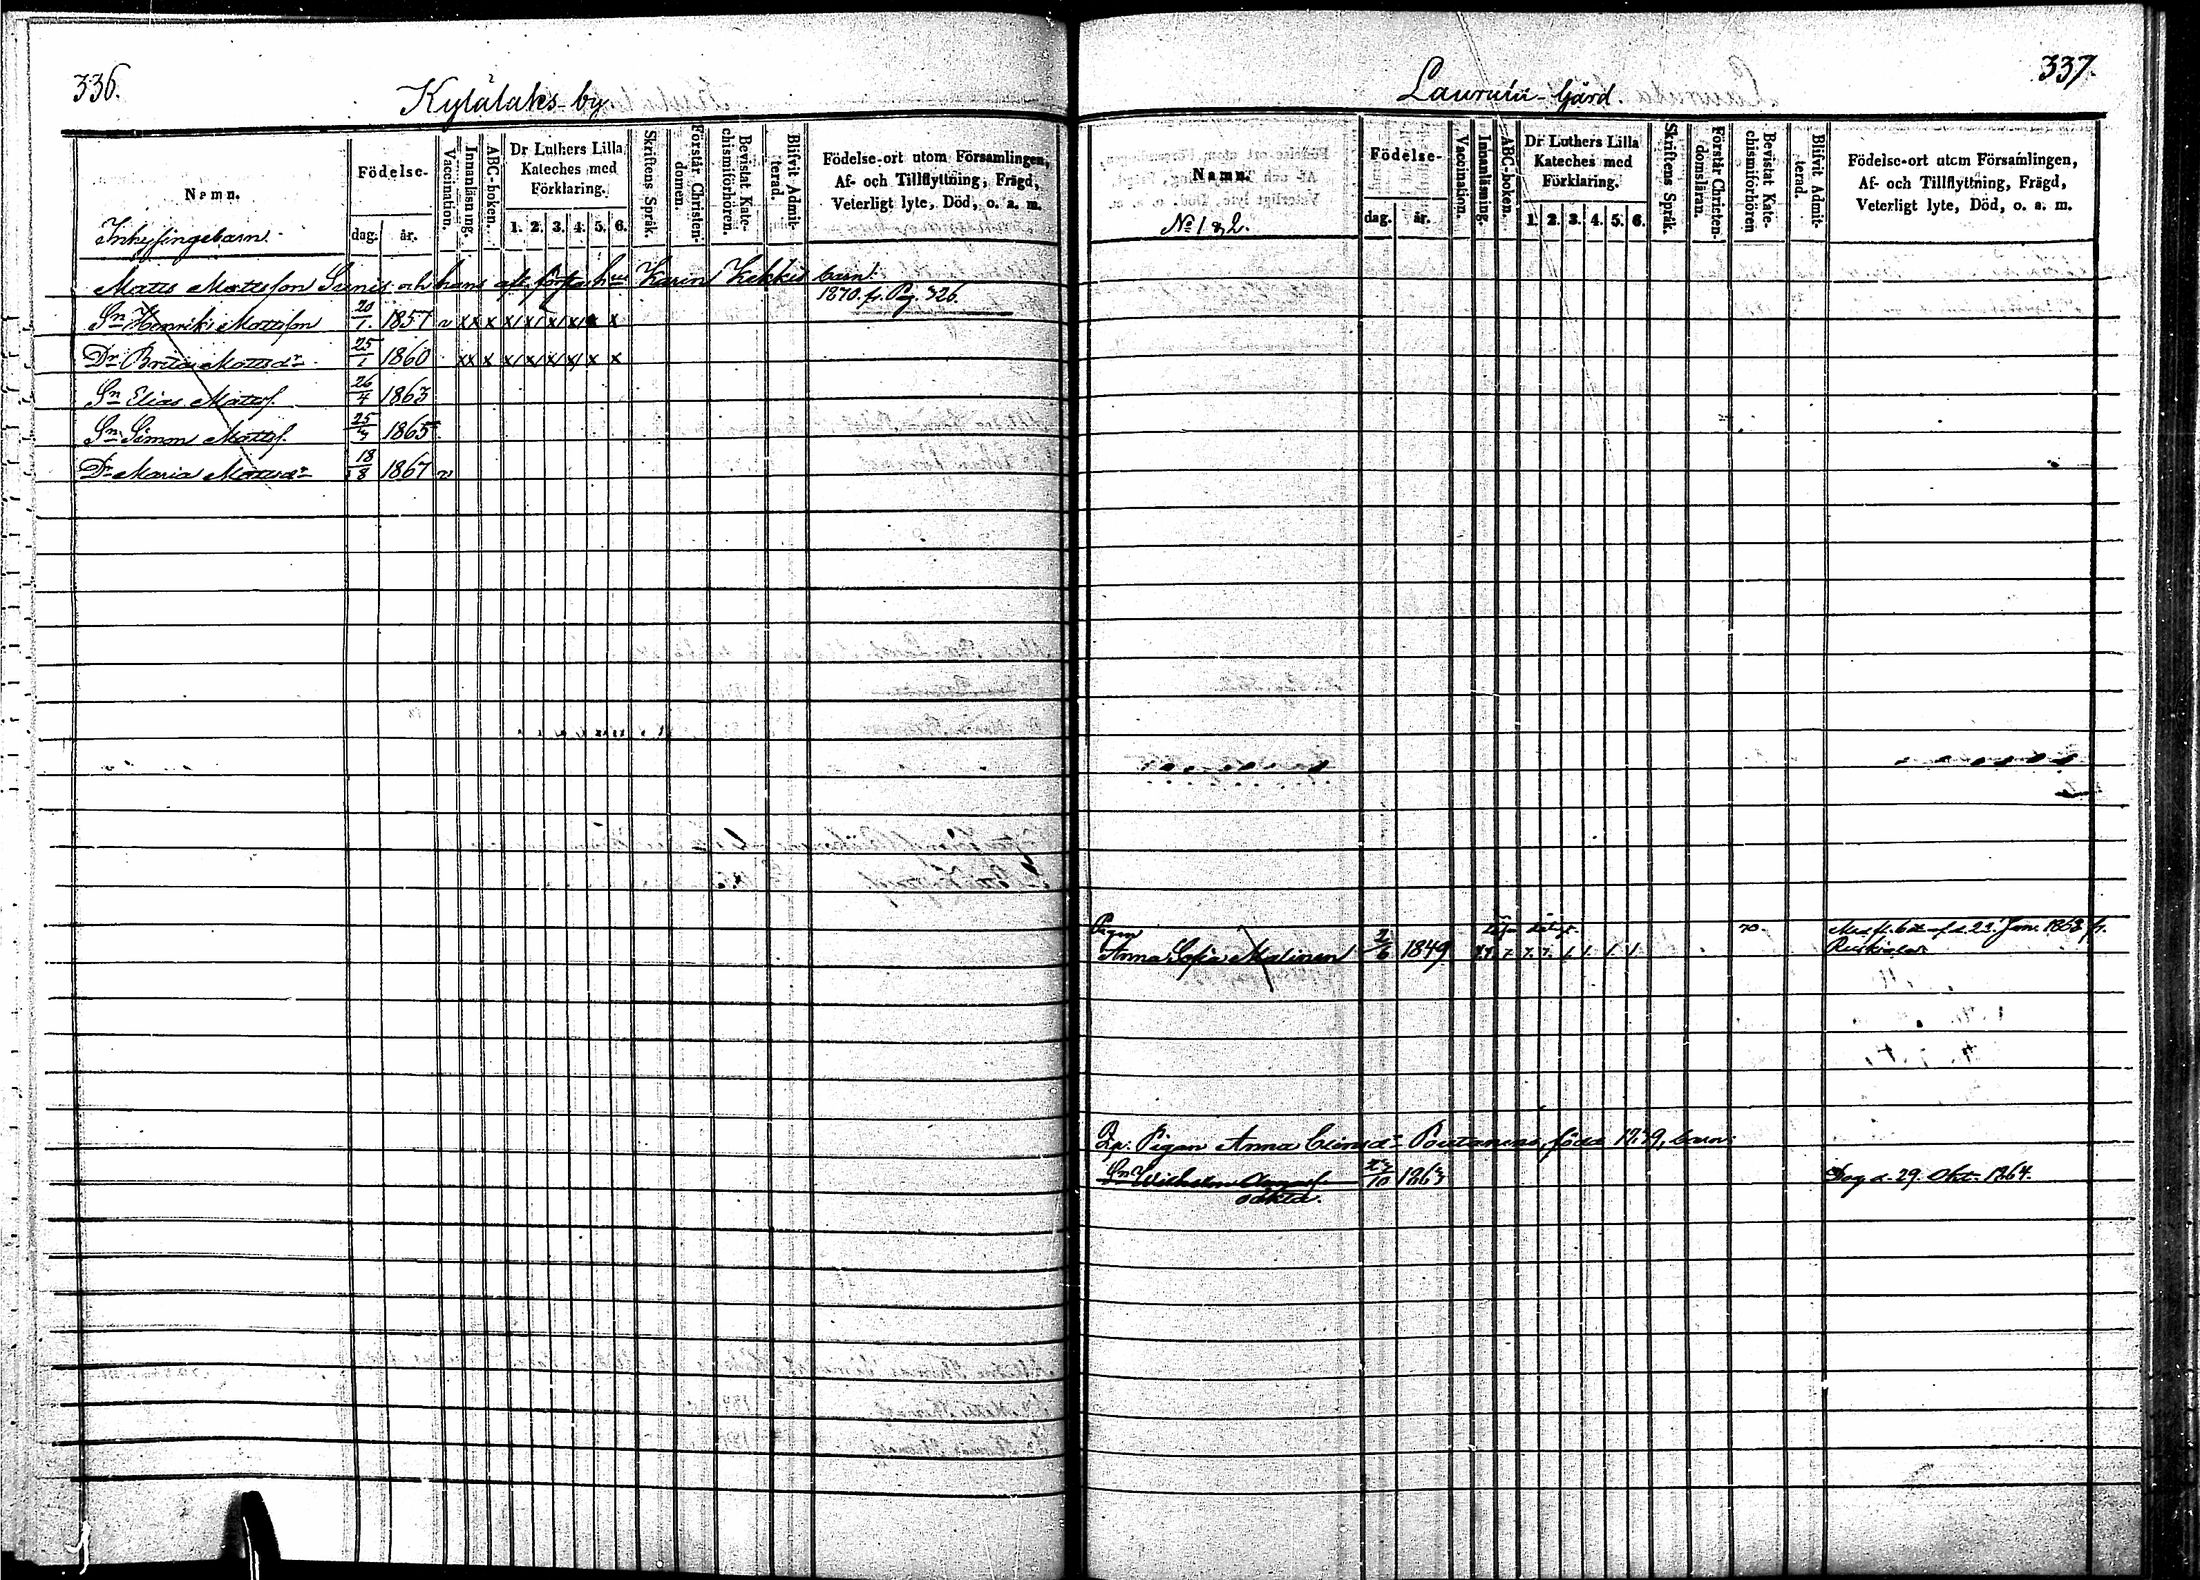 336.
Kylälaks-by.
Namn.
Födelse-
dag. år.
Vaccination.
Innanläsning.
ABC-boken.
Dr Luthers Lilla
Kateches med
Förklaring.
1. 2. 3. 4. 5. 6.
Skriftens Språk.
Förstår Christen-
domen.
Bevistat Kate-
chismiförhören.
Blifvit Admit-
terad.
Födelse-ort utom Församlingen,
Af- och Tillflyttning, Frägd,
Veterligt lyte, Död, o. s. m.
Inhysingebarn.
Matts Mattsson och hans första hu Karin barn:
1870. fr. Pag. 326.
Sn Henrik Mattsson 20/1. 1857
Dr Brita Mattsdr 25/1 1860
Sn Elias Matts. 26/4 1863
Sn Simon Matts. 25/3 1865
Dr Maria Mattsdr 18/8 1867
337.
Laurula-Gård.
Namn.
No 1 & 2.
Födelse-
dag. år.
Vaccination.
Innanläsning.
ABC-boken.
Dr Luthers Lilla
Kateches med
Förklaring.
1. 2. 3. 4. 5. 6.
Skriftens Språk.
Förstår Christen-
domsläran.
Bevistat Kate-
chismiförhören
Blifvit Admit-
terad.
Födelse-ort utom Församlingen,
Af- och Tillflyttning, Frägd,
Veterligt lyte, Död, o. s. m.
Pigan 70. d. 22. Jan. 1868 fr.
Anna Sofia Malinen 2/6 1849
Pigan Anna född barn:
Sn Wilhelm 1863 Dog d. 29. Okt. 1864.
oäkta.